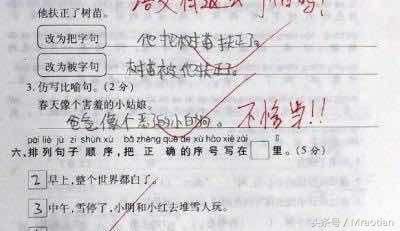 他扶正了树苗。
改为把字句 他把树苗扶正了。
改为被字句 树苗被他扶正了。
3. 仿写比喻句。(2 分)
春天像个害羞的小姑娘。
爸爸像个 的小白狗。 不恰当!!
pái liè jù zi shùn xù bǎ zhèng què de xù hào xiě zài lǐ
六、排列句子顺序,把正确的序号写在 里。(5 分)
2 早上,整个世界都白了。
3 中午,雪停了,小明和小红去堆雪人玩。
头条号 / Mraotian